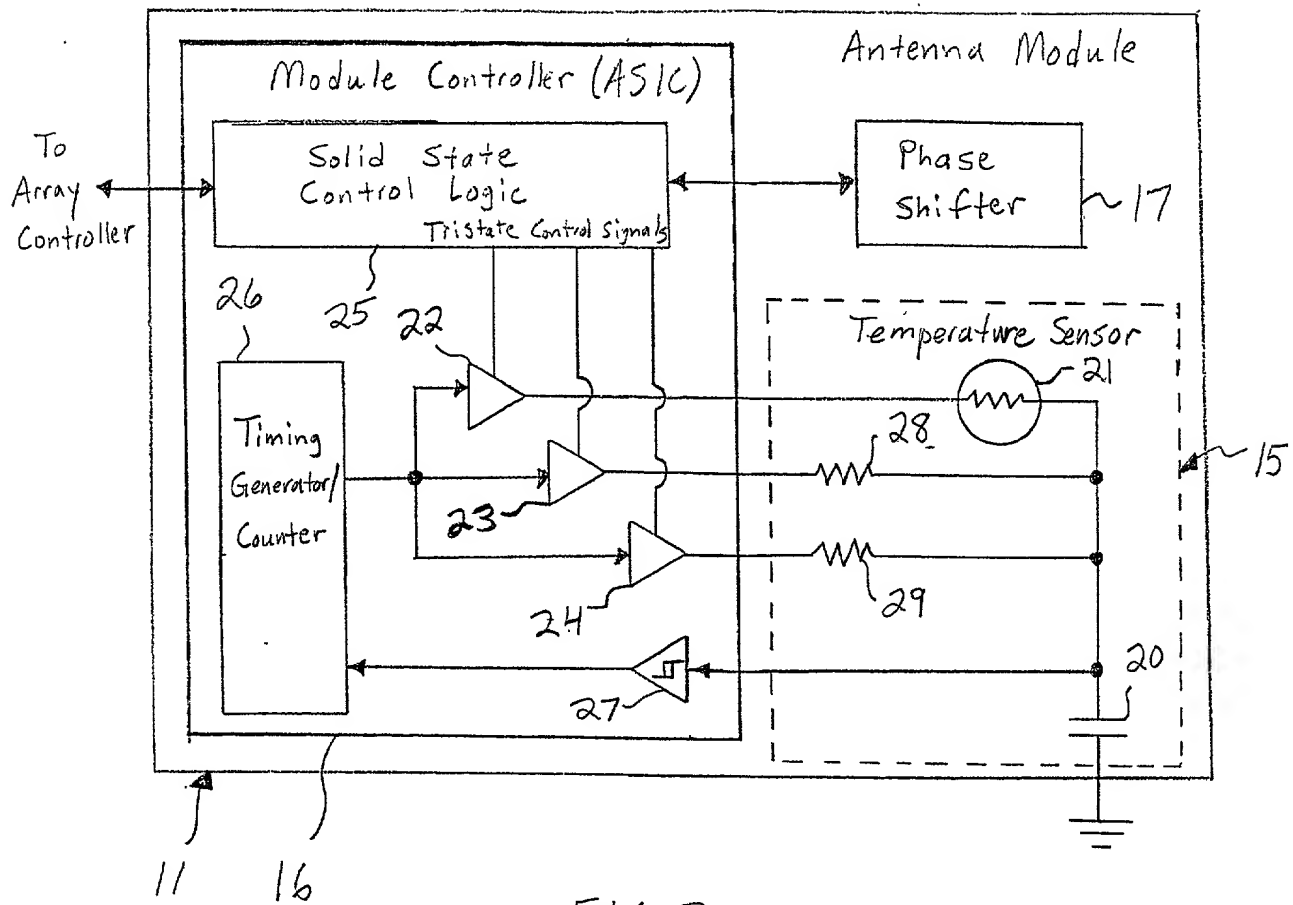 Antenna Module
Module Controller (ASIC)
To
Array
Controller
Solid State
Control Logic
Tristate Control Signals
Phase
Shifter
17
26
25
22
Temperature Sensor
21
Timing
Generator/
Counter
28
15
23
24
29
27
20
11
16